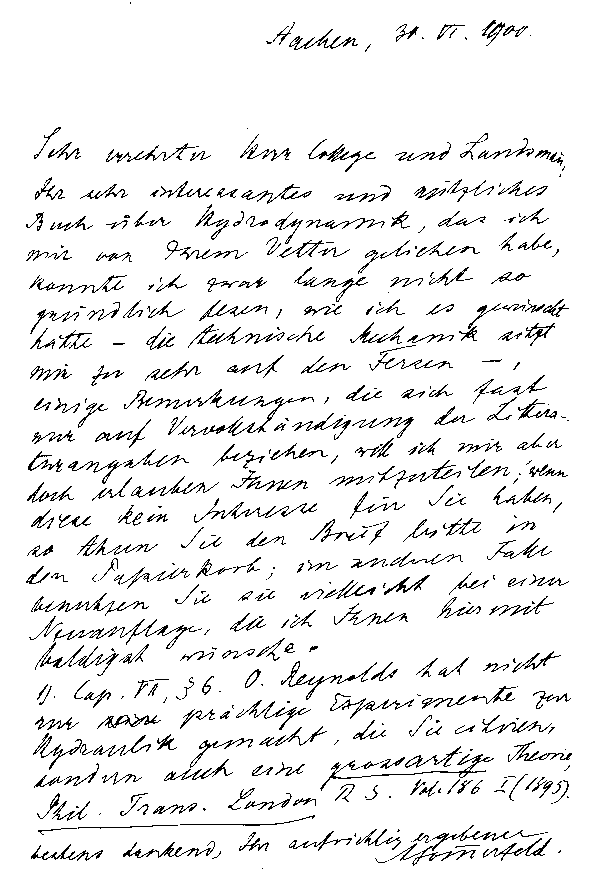 Aachen, 30. VI. 1900.
Sehr verehrter Herr College und Landsmann,
Ihr sehr interessantes und nützliches
Buch über Hydrodynamik, das ich
mir von Ihrem Vetter geliehen habe,
konnte ich zwar lange nicht so
gründlich lesen, wie ich es gewünscht
hätte – die technische Mechanik sitzt
mir zu sehr auf den Fersen –,
einige Bemerkungen, die sich fast
nur auf Vervollständigung der Littera-
turangaben beziehen, will ich mir aber
doch erlauben Ihnen mitzuteilen; wenn
diese kein Interesse für Sie haben,
so thun Sie den Brief bitte in
den Papierkorb; im anderen Falle
benutzen Sie sie vielleicht bei einer
Neuauflage, die ich Ihnen hiermit
baldigst wünsche.
1). Cap. VII, § 6. O. Reynolds hat nicht
nur prächtige Experimente zur
Hydraulik gemacht, die Sie citieren,
sondern auch eine grossartige Theorie,
Phil. Trans. London R. S. Vol. 186 I (1895).
bestens dankend, Ihr aufrichtig ergebener
ASommerfeld.